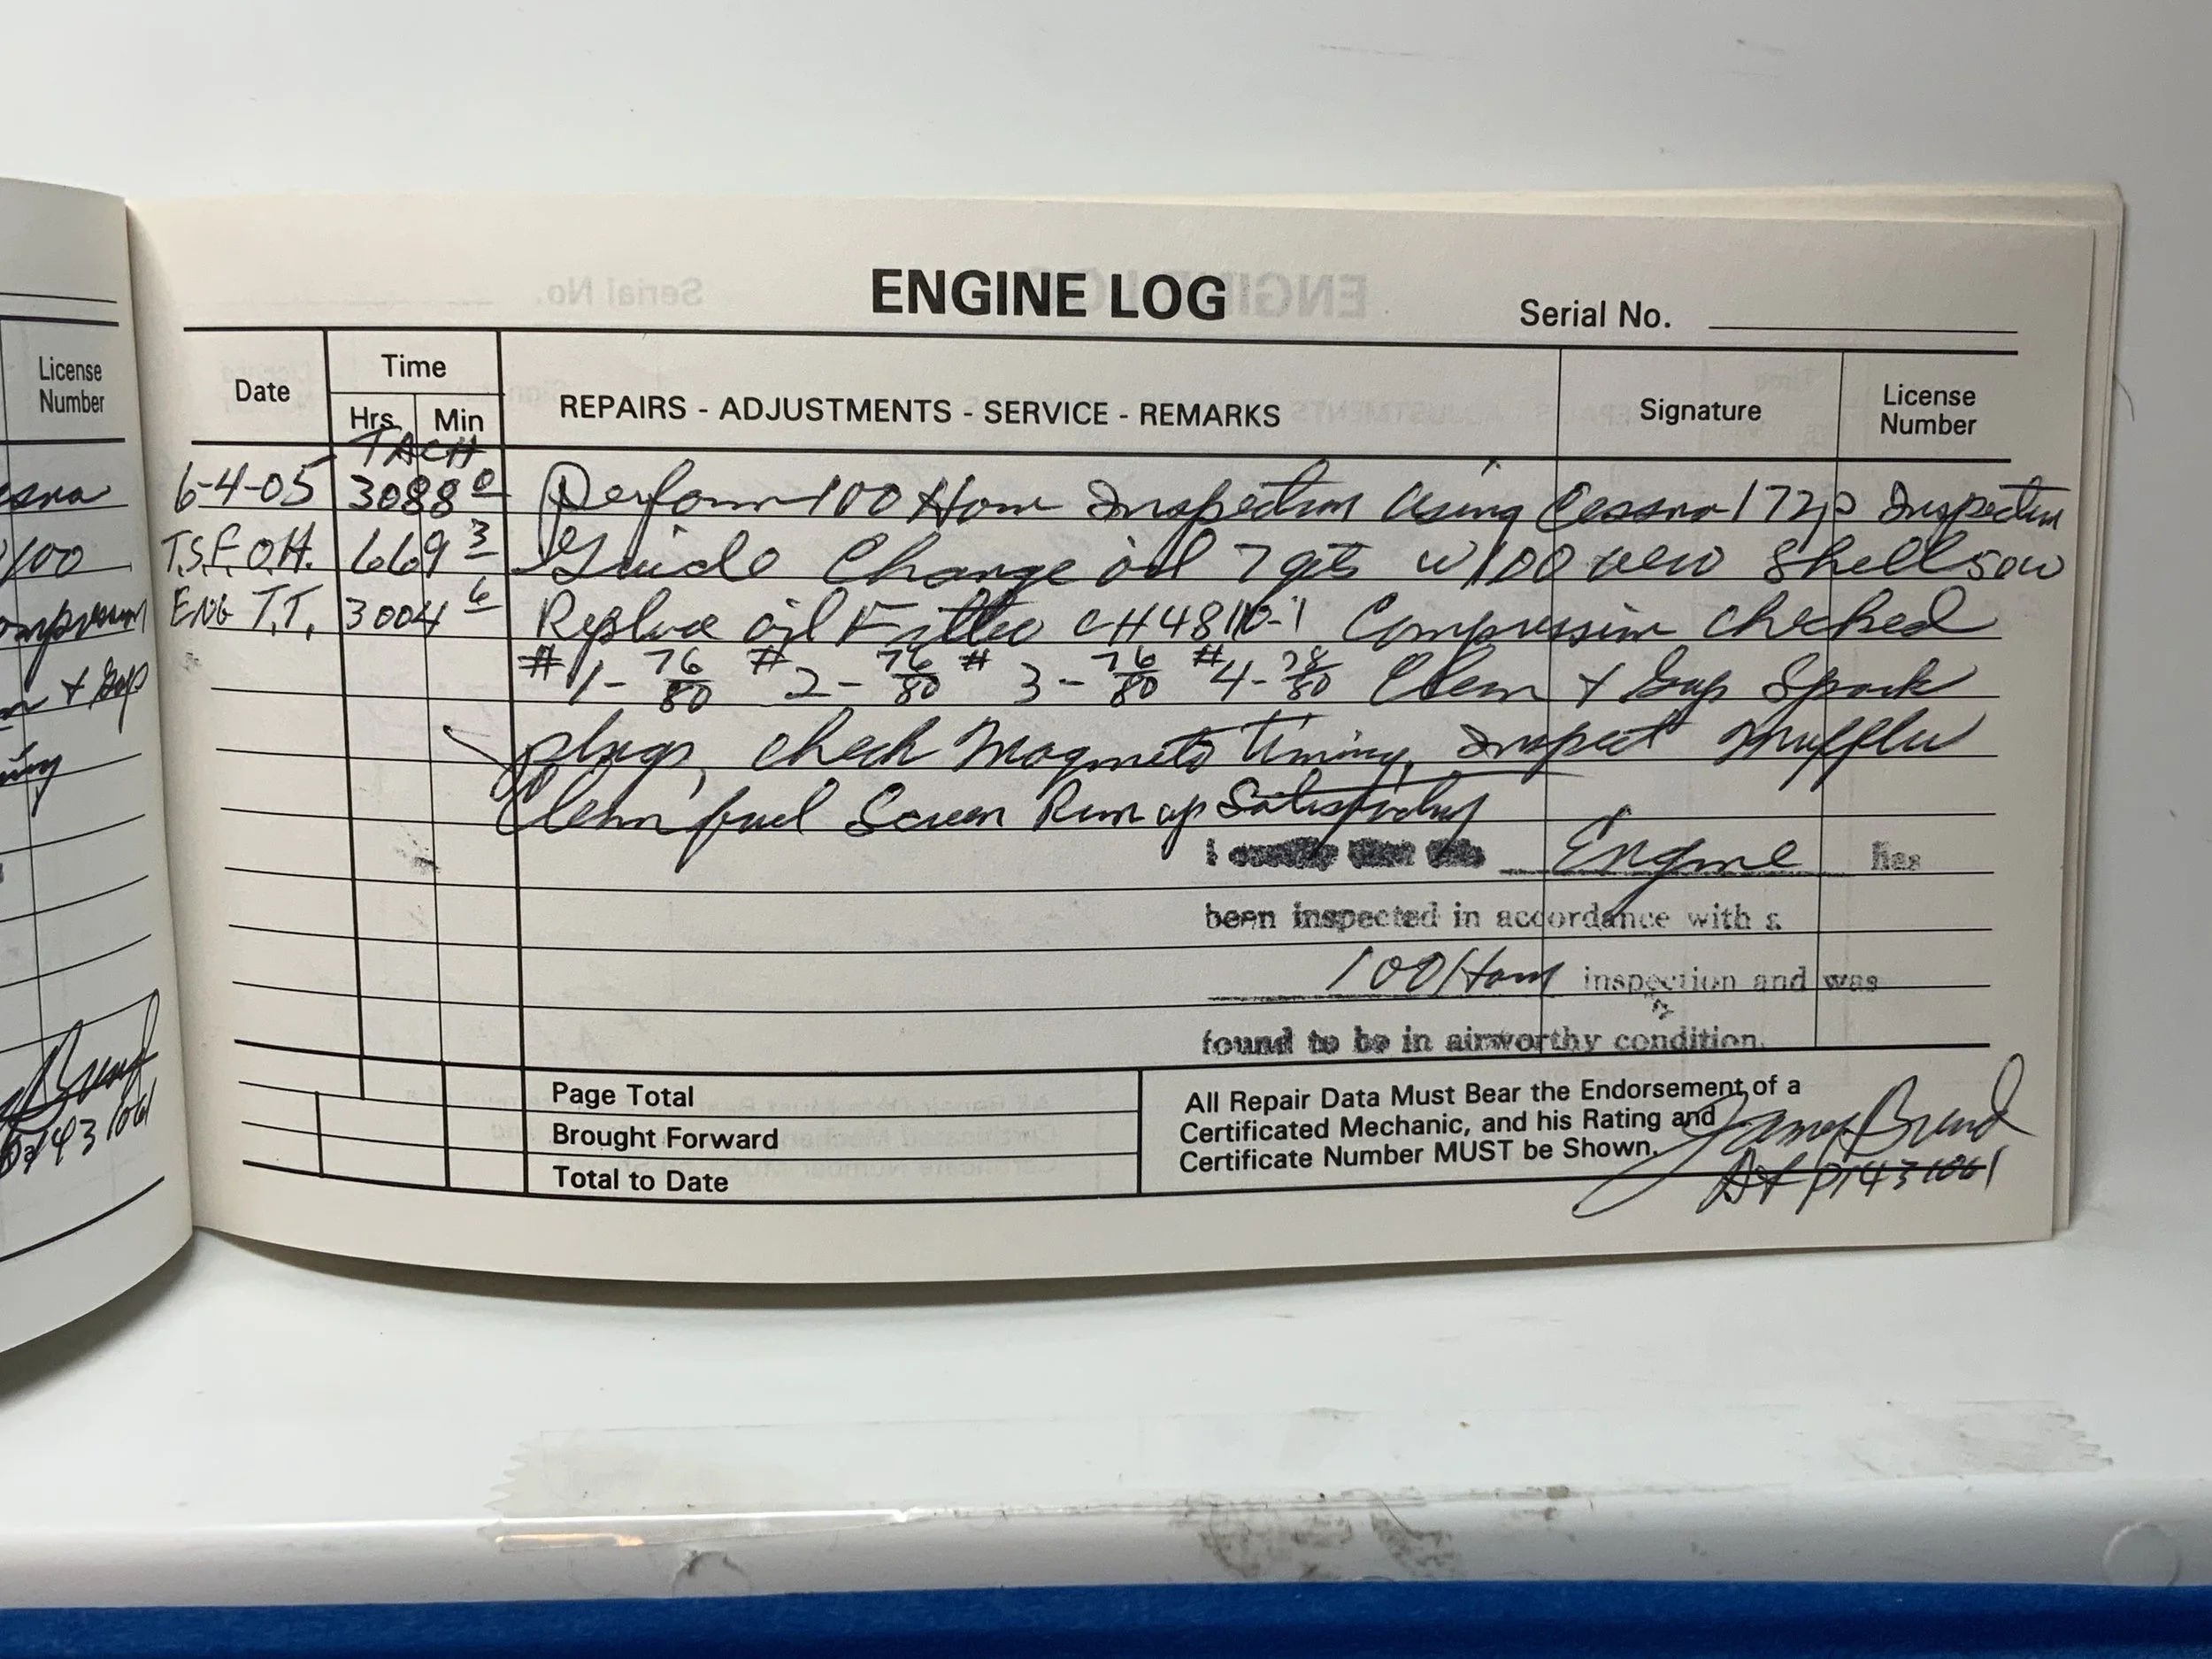 ENGINE LOG
Serial No.
License Number
Date
Time
Hrs Min
REPAIRS - ADJUSTMENTS - SERVICE - REMARKS
Signature
License Number
TACH
6-4-05 3088 0 Perform 100 Hour Inspection Using Cessna 172p Inspection
T.S.F.O.H. 669 3 Guide Change oil 7 qts w/100 aero Shell 50w
ENG T.T. 3004 6 Replace oil Filter CH48110-1 Compression checked
#1- 76/80 #2- 76/80 #3- 76/80 #4- 78/80 Clean + Gap Spark
plugs, check Magneto timing, Inspect Muffler
Clean fuel Screen Run up Satisfactory
I certify that this Engine has
been inspected in accordance with a
100 Hour inspection and was
found to be in airworthy condition.
Page Total
Brought Forward
Total to Date
All Repair Data Must Bear the Endorsement of a
Certificated Mechanic, and his Rating and
Certificate Number MUST be Shown.
James